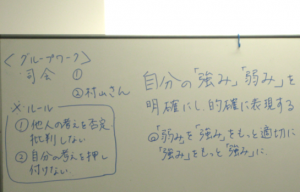 <グループワーク>
司会 ①
②村山さん
※ルール
①他人の考えを否定
批判しない
②自分の考えを押し
付けない
自分の「強み」「弱み」を
明確にし、的確に表現する
「弱み」を「強み」をもっと適切に
「強み」をもっと「強み」に